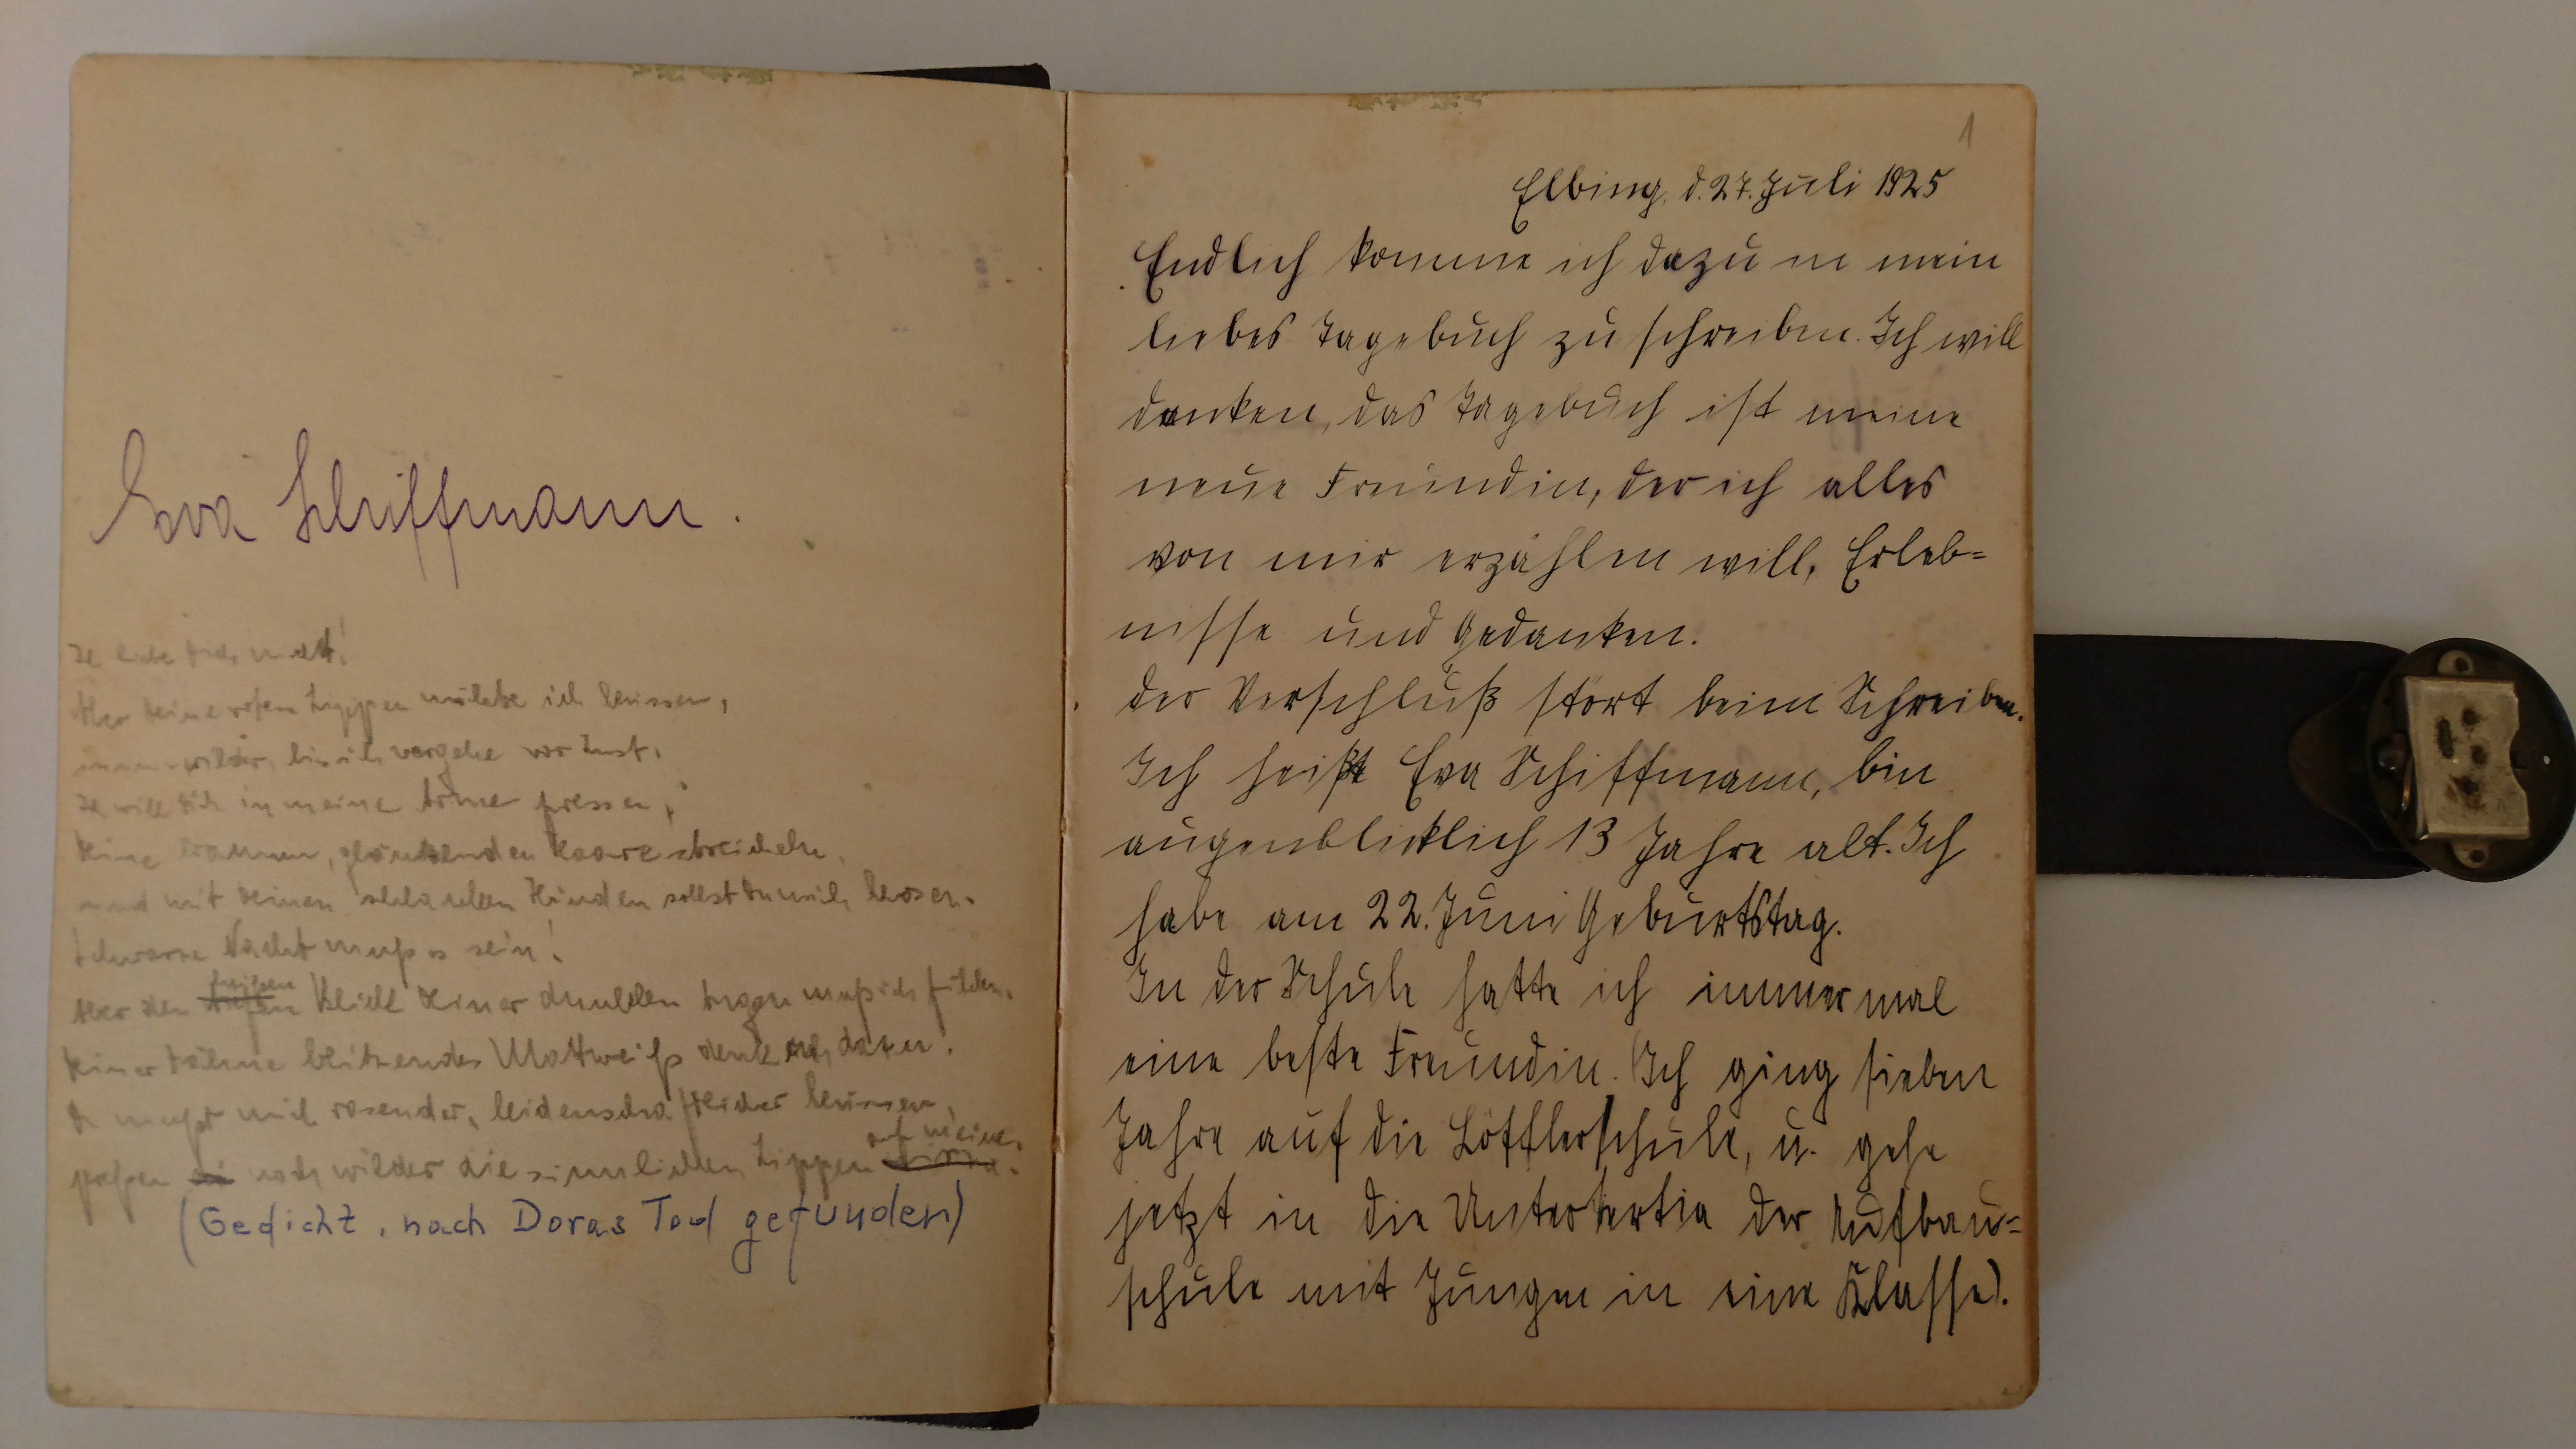 Eva Schiffmann.
Ich liebe dich nicht!
Aber deine roten Lippen möchte ich küssen,
immer wilder, bis ich vergehe vor Lust.
Ich will dich in meine Arme pressen,
deine braunen, glänzenden Haare streicheln,
und mit deinen schlanken Händen sollst du mich kosen.
Schwarze Nacht muß es sein!
heißen
Aber den tiefen Blick deiner dunklen Augen muß ich fühlen.
deiner Zähne blitzendes Mattweiß
du mußt mich rasender, leidenschaftlicher küssen,
auf meine.
noch wilder die sinnlichen Lippen
(Gedicht, nach Doras Tod gefunden)
1
Elbing, d. 27. Juli 1925
Endlich komme ich dazu in mein
liebes Tagebuch zu schreiben. Ich will
denken, das Tagebuch ist meine
neue Freundin, der ich alles
von mir erzählen will, Erleb=
nisse und Gedanken.
Der Verschluß stört beim Schreiben.
Ich heiße Eva Schiffmann, bin
augenblicklich 13 Jahre alt. Ich
habe am 22. Juni Geburtstag.
In der Schule hatte ich immer mal
eine beste Freundin. (Ich ging sieben
Jahre auf die Löfflerschule, u. gehe
jetzt in die Untertertia der Aufbau=
schule mit Jungen in eine Klasse).